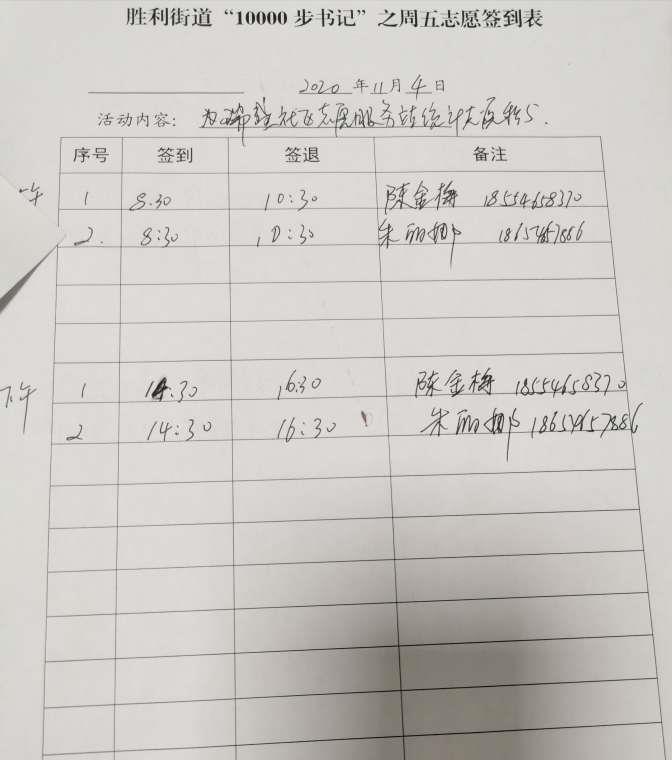 胜利街道“10000步书记”之周五志愿签到表
2020年11月4日
活动内容: 为 社区志愿服务站统计
序号 签到 签退 备注
午
1 8:30 10:30 陈金梅 18554658370
2. 8:30 10:30 朱丽娜
下午
1 14:30 16:30 陈金梅 18554658370
2 14:30 16:30 朱丽娜 18654657886